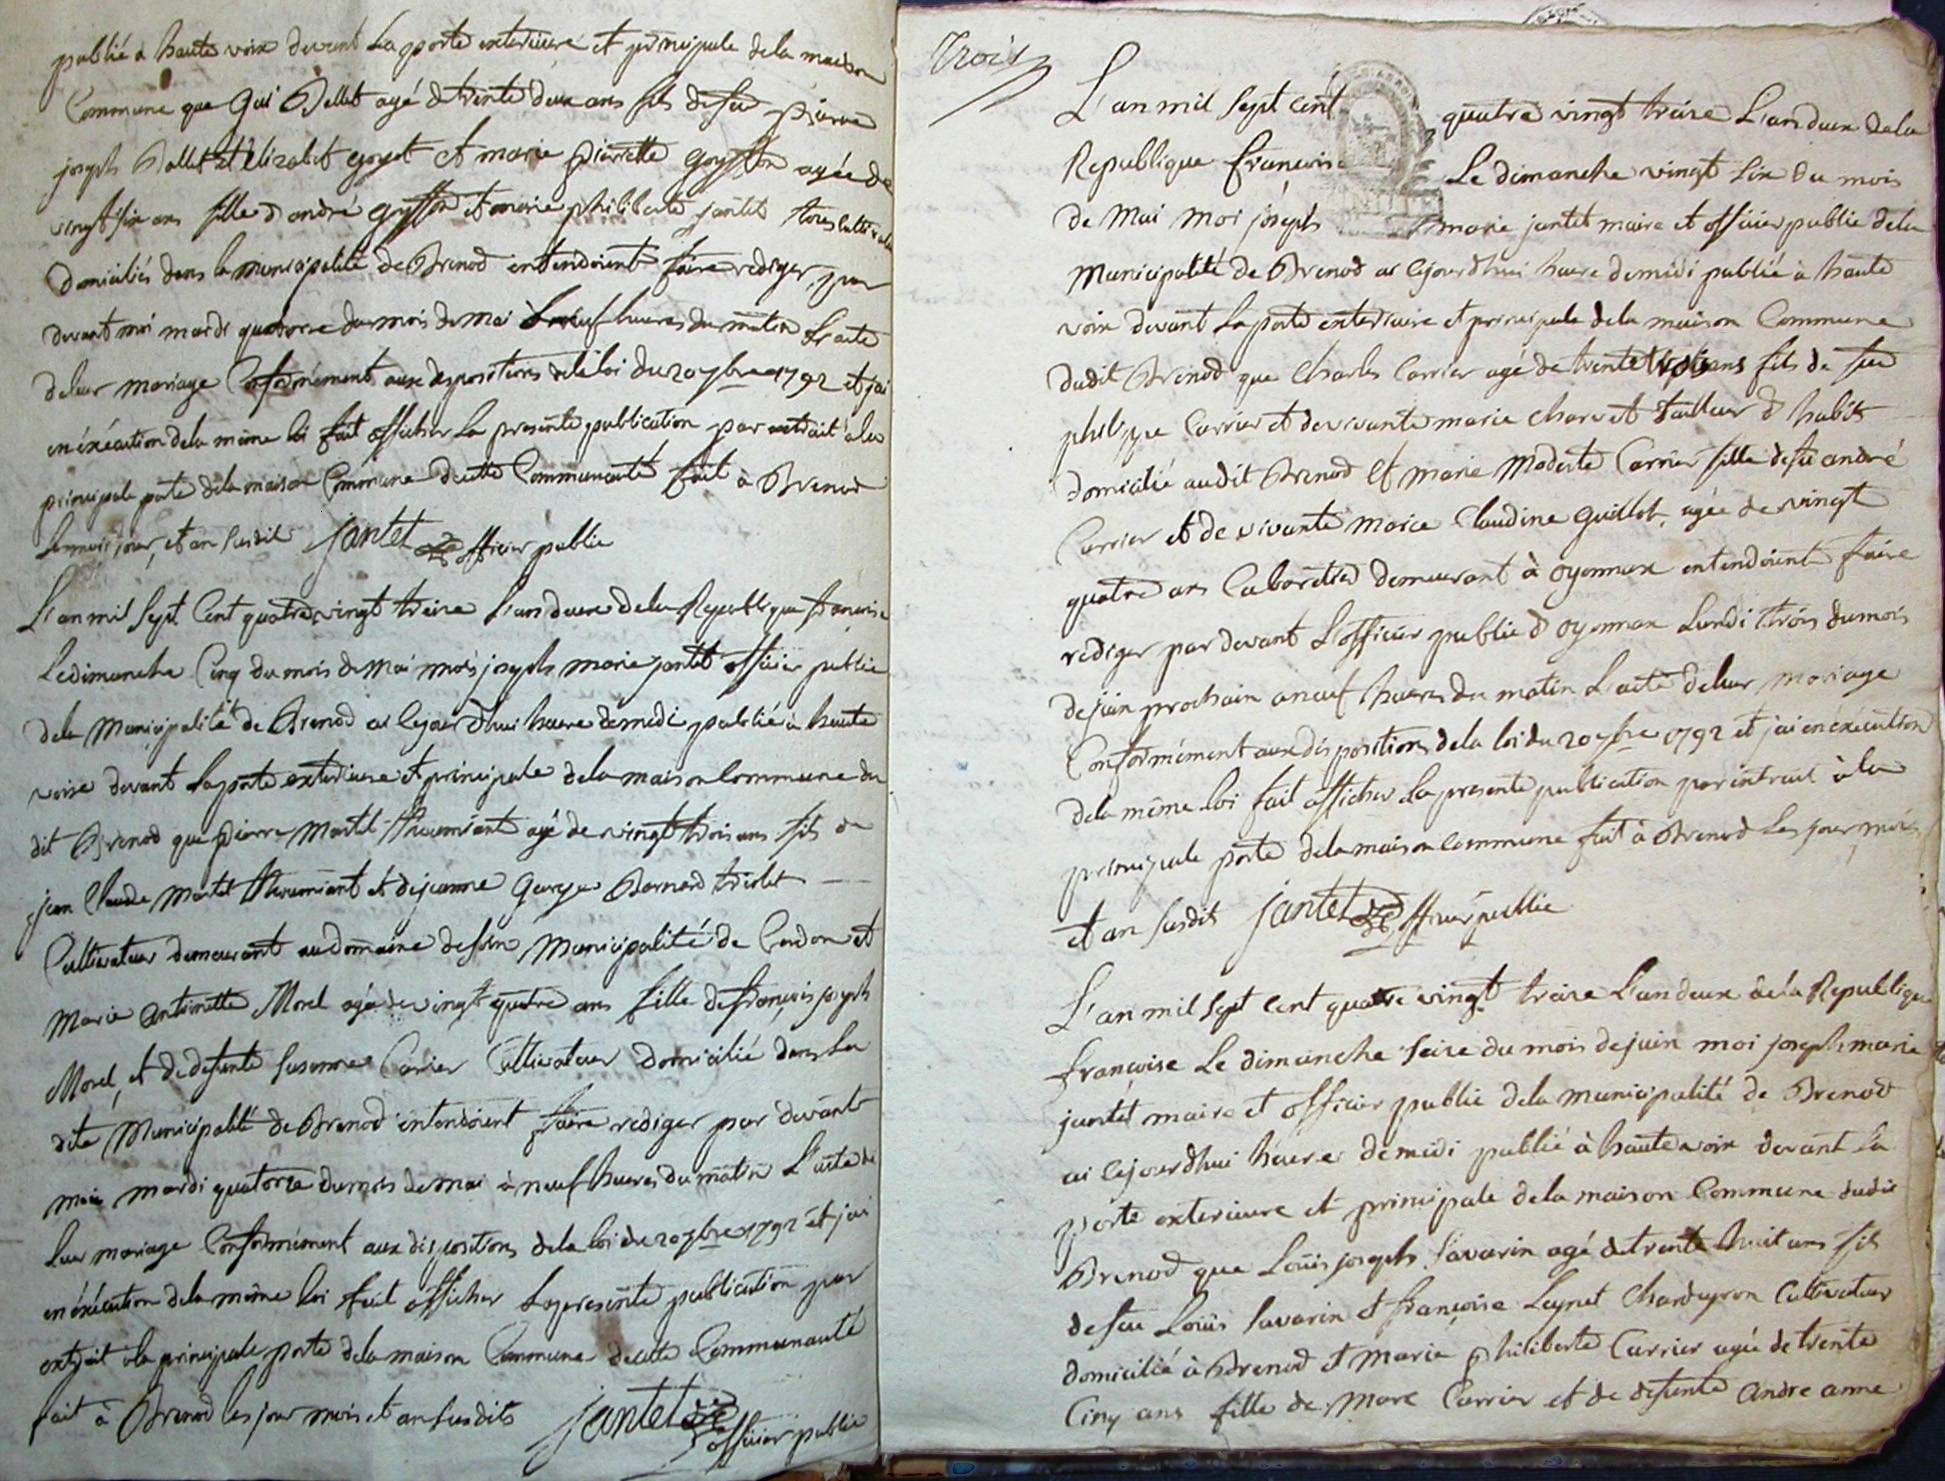 publié à haute voix devant la porte exterieure et principale dela maison
Commune que Gui Ballet agé de trente deux ans fils de feu pierre
joseph Ballet et Elizabet goyet et marie pierrette Goyffon agée de
vingt six ans fille d'andré Goyffon et marie philiberte jantet tous
domiciliés dans la municipalité de Brenod entendoient faire rediger par
devant moi mardi quatorze du mois de mai à neuf heures du matin l'acte
de leur mariage Conformément aux dispositions de la loi du 20 7bre 1792 et j'ai
en éxécution dela même loi fait afficher la presente publication par extrait à la
principale porte dela maison Commune de cette Communauté fait à Brenod
les mois jour, et an susdit jantet officier public
L'an mil sept Cent quatre vingt treize L'an deux dela Republique francoise
Le dimanche Cinq du mois de mai moi joseph marie jantet officier public
dela Municipalité de Brenod ai cejourdhui heure de midi publié à haute
voix devant la porte exterieure et principale dela maison Commune du
dit Brenod que pierre Martel agé de vingt trois ans fils de
jean Claude Martel et de jeanne Bernard
Cultivateur demeurant au domaine Municipalité de Cerdon et
Marie antoinette Morel agée de vingt quatre ans fille de françois joseph
Morel, et de defunte Susanne Carrier Cultivateur domicilié dans la
dite Municipalité de Brenod entendoient faire rediger par devant
moi mardi quatorze du mois de mai à neuf heures du matin L'acte de
leur mariage Conformément aux dispositions dela loi du 20 7bre 1792 et j'ai
en éxécution dela même loi fait afficher la presente publication par
extrait à la principale porte dela maison Commune de cette Communauté
fait à Brenod les jour mois et an susdits jantet
officier public
Trois
L'an mil sept cent quatre vingt treize L'an deux dela
Republique francoise Le dimanche vingt six du mois
de Mai moi joseph marie jantet maire et officier public dela
Municipalité de Brenod ai cejourdhui heure de midi publié à haute
voix devant la porte exterieure et principale dela maison Commune
dudit Brenod que Charles Carrier agé de trente trois ans fils de feu
philippe Carrier et de vivante marie tailleur d'habits
domicilié audit Brenod et marie Modeste Carrier fille de feu andré
Carrier et de vivante Marie Claudine Guillot, agée de vingt
quatre ans demeurant à oyonnax entendoient faire
rediger par devant L'officier public d'oyonnax Lundi trois du mois
de juin prochain a neuf heures du matin L'acte de leur mariage
Conformément aux dispositions dela loi du 20 7bre 1792 et j'ai en éxécution
dela même loi fait afficher la presente publication par extrait à la
principale porte dela maison commune fait à Brenod les jour, mois
et an susdits jantet officier public
L'an mil sept cent quatre vingt treize L'an deux de la Republique
françoise Le dimanche seize du mois de juin moi joseph marie
jantet maire et officier public dela municipalité de Brenod
ai cejourdhui heure de midi publié à haute voix devant la
porte exterieure et principale dela maison Commune dudit
Brenod que Louis joseph Savarin agé de trente huit ans fils
de feu Louis Savarin et françoise Cultivateur
domicilié à Brenod et Marie philiberte Carrier agée de trente
Cinq ans fille de Marc Carrier et de defunte Andre anne